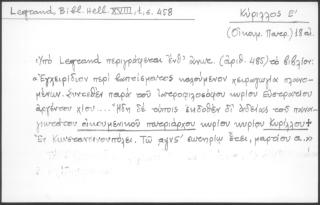 Legrand, Bibl. Hell. XVIII, t, σ. 458
Κύριλλος Ε΄
(Οἰκουμ. Πατρ.) 18 αἰ.
Ὑπὸ Legrand περιγράφεται ἐνθ' ἀνωτ. (ἀριθ. 485) τὸ βιβλίον:
«Ἐγχειρίδιον περὶ βαπτίσματος καλούμενον χειραγωγία πλανω-
μένων. Συντεθὲν παρὰ τοῦ ἰατροφιλοσόφου κυρίου εὐστρατίου
ἀργέντου χίου... Ἤδη δὲ τύποις ἐκδοθὲν δι' ἀδείας τοῦ παναγι-
ωτάτου οἰκουμενικοῦ πατριάρχου κυρίου κυρίου Κυρίλλου †
Ἐν Κωνσταντινουπόλει. Τῷ αψνϛ΄ σωτηρίῳ ἔτει, μαρτίου α..»